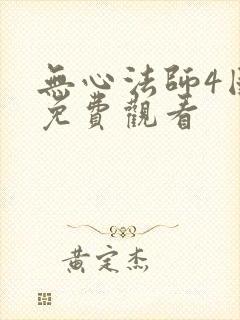 無心法師4國
免費觀看
黃定杰